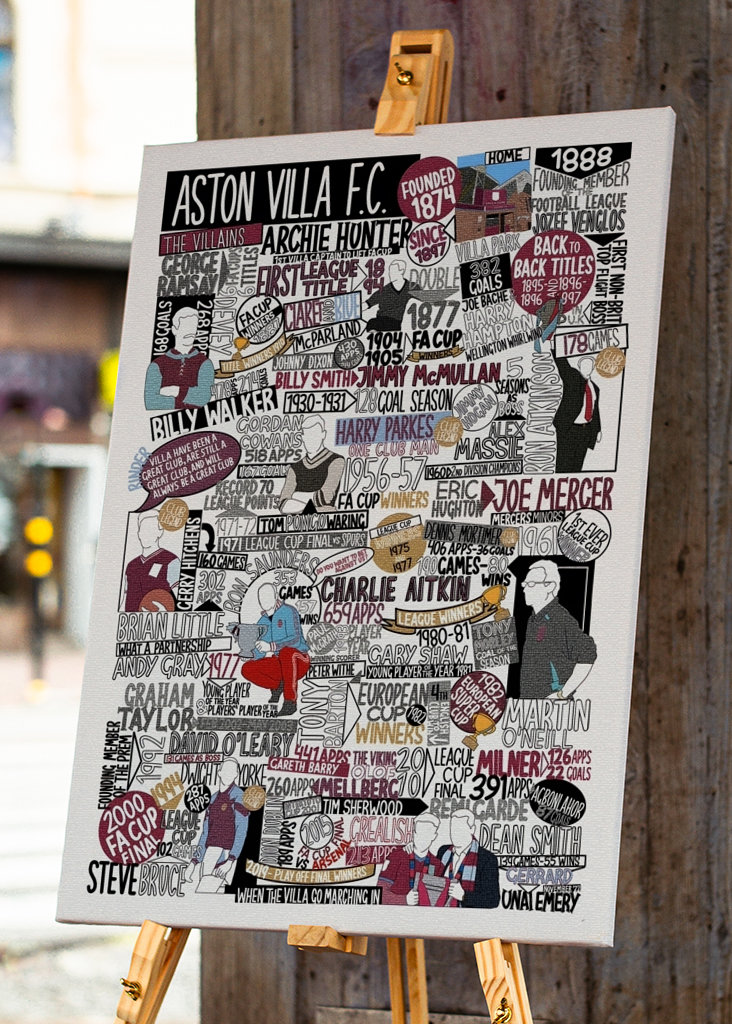 ASTON VILLA F.C.
FOUNDED
1874
HOME
1888
FOUNDING MEMBER
OF THE
FOOTBALL LEAGUE
JOZEF VENGLOS
THE VILLAINS
ARCHIE HUNTER
1ST VILLA CAPTAIN TO LIFT FA CUP
SINCE
1897
VILLA PARK
BACK TO
BACK TITLES
1895-1896
AND
1896-1897
GEORGE
RAMSAY
TITLES
FIRST LEAGUE
TITLE
18
94
DOUBLE
382
GOALS
JOE BACHE
HARRY
HAMPTON
WELLINGTON WHIRLWIND
FA CUP
WINNERS
CLARET AND BLUE
1877
MCPARLAND
1904
1905
FA CUP
WINNERS
268 APPS
TITLE WINNERS
JOHNNY DIXON
178 GAMES
CLUB
LEGEND
BILLY SMITH
JIMMY MCMULLAN
5
SEASONS
AS
BOSS
214
GOALS
BILLY WALKER
1930-1931
128 GOAL SEASON
RON ATKINSON
ALEX
MASSIE
GORDAN
COWANS
518 APPS
HARRY PARKES
ONE CLUB MAN
CLUB
LEGEND
VILLA HAVE BEEN A
GREAT CLUB, ARE STILL A
GREAT CLUB, AND WILL
ALWAYS BE A GREAT CLUB
167 GOALS
1956-57
FA CUP WINNERS
1960 2ND DIVISION CHAMPIONS
RECORD 70
LEAGUE POINTS
ERIC
HUGHTON
JOE MERCER
MERCERS MINORS
CLUB
LEGEND
1971-72
TOM PONGO WARING
1971 LEAGUE CUP FINAL VS SPURS
LEAGUE CUP
WINNERS
1975
1977
DENNIS MORTIMER
406 APPS-36 GOALS
1961
1ST EVER
LEAGUE CUP
GERRY HITCHENS
160 GAMES
RON SAUNDERS
190 GAMES-80
WINS
302
APPS
353
GAMES
WINS
CHARLIE AITKIN
659 APPS
LEAGUE WINNERS
1980-81
BRIAN LITTLE
WHAT A PARTNERSHIP
ANDY GRAY
1977
PLAYER
OF THE
YEAR
GARY SHAW
YOUNG PLAYER OF THE YEAR 1981
TONY
SEASON
PETER WITHE
GRAHAM
TAYLOR
YOUNG PLAYER
OF THE YEAR
PLAYERS' PLAYER OF THE YEAR
TONY
BARTON
EUROPEAN
CUP
1982
WINNERS
4TH
1982
EUROPEAN
SUPER
CUP
MARTIN
O'NEILL
FOUNDING MEMBER
OF THE PREM
1992
DAVID O'LEARY
131 GAMES AS BOSS
441 APPS
GARETH BARRY
THE VIKING
OLOF
MELLBERG
LEAGUE
CUP
FINAL
MILNER
126 APPS
22 GOALS
DWIGHT YORKE
260 APPS
391 APPS
AGBONLAHOR
87 GOALS
1994
LEAGUE
CUP
287
APPS
2000
FA CUP
FINAL
TIM SHERWOOD
REMI GARDE
2015
FA CUP FINAL
VS
ARSENAL
GREALISH
213 APPS
DEAN SMITH
139 GAMES-55 WINS
STEVE BRUCE
2019 - PLAY OFF FINAL WINNERS
GERRARD
NOVEMBER 22
WHEN THE VILLA GO MARCHING IN
UNAI EMERY